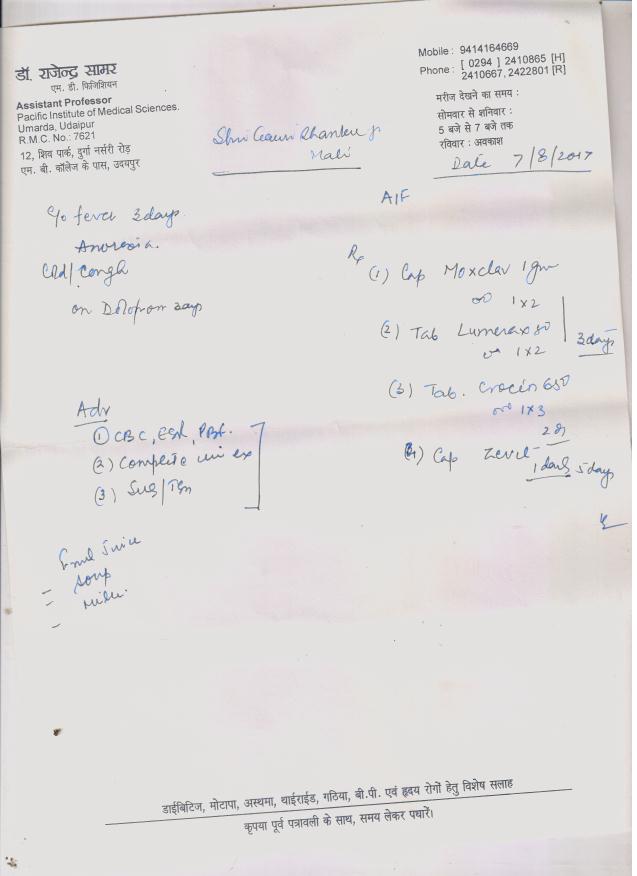 डॉ. राजेन्द्र सामर
एम. डी. फिजिशियन
Assistant Professor
Pacific Institute of Medical Sciences.
Umarda, Udaipur
R.M.C. No.: 7621
12, शिव पार्क, दुर्गा नर्सरी रोड़
एम. बी. कॉलेज के पास, उदयपुर
Mobile : 9414164669
Phone : [ 0294 ] 2410865 [H]
2410667, 2422801 [R]
मरीज देखने का समय :
सोमवार से शनिवार :
5 बजे से 7 बजे तक
रविवार : अवकाश
Date 7/8/2017
Shri Gauri Shanker ji
Mali
A/F
c/o fever 3 days
Anorexia.
Cold/Cough
on Dolopar 3 days
Rx
(1) Cap Moxclav 1 gm
1 x 2
(2) Tab Lumerax 80
1 x 2
3 days
(3) Tab. Crocin 650
1 x 3
(4) Cap
1 daily 5 days
Adv
(1) CBC, ESR, PBF.
(2) Complete uri ex
(3) Sug/
Soup
Milk.
डाईबिटिज, मोटापा, अस्थमा, थाईराईड, गठिया, बी.पी. एवं हृदय रोगों हेतु विशेष सलाह
कृपया पूर्व पत्रावली के साथ, समय लेकर पधारें।